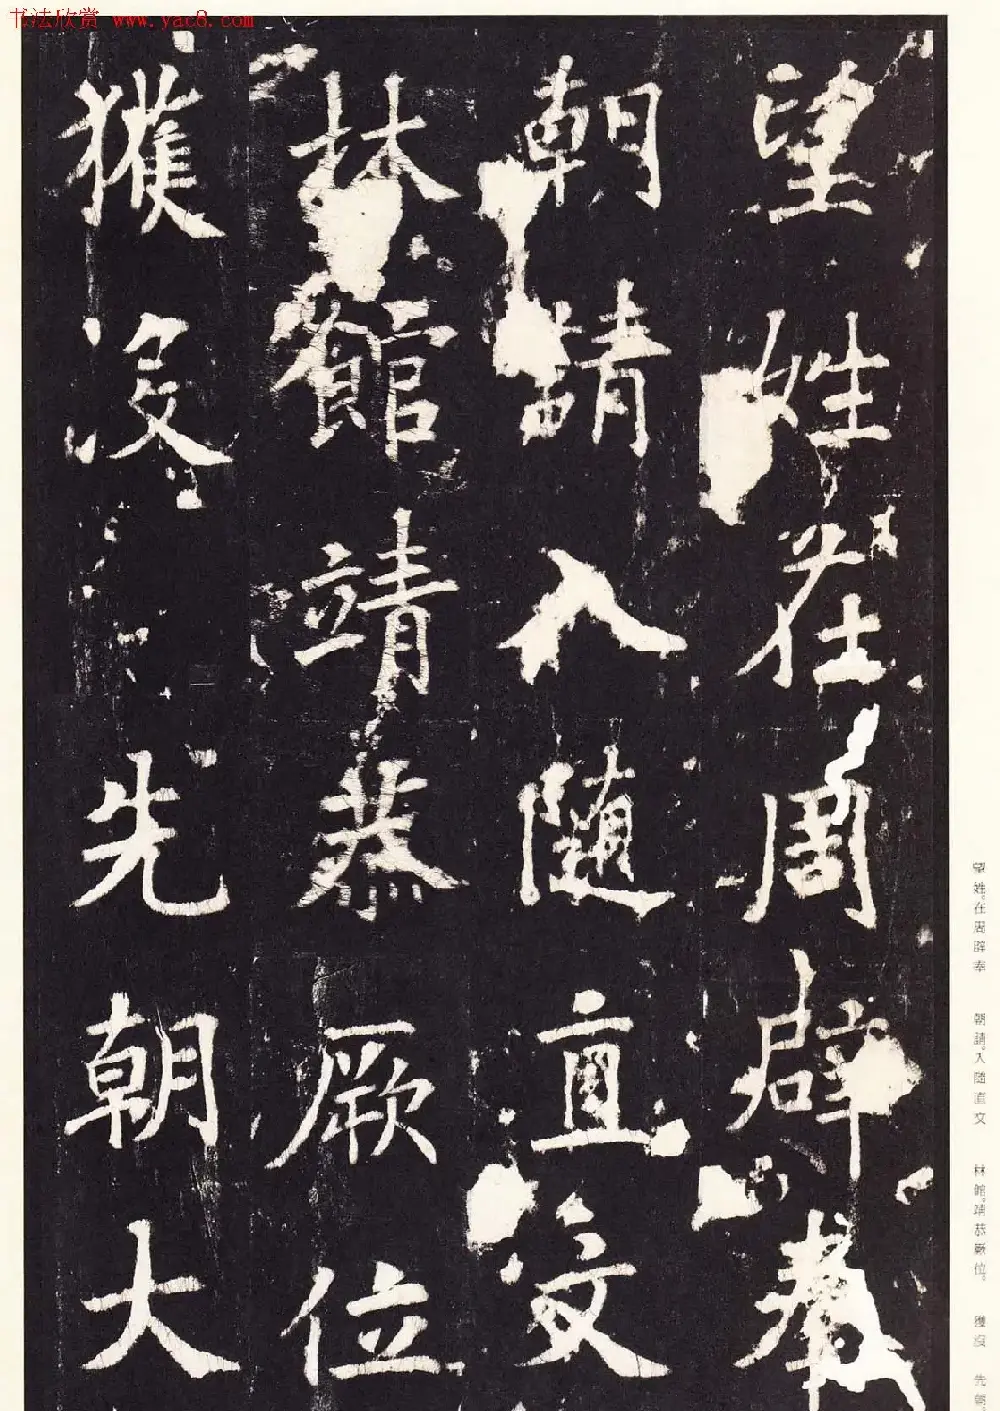 书法欣赏 www.yac8.com
望姓在周辟奉
朝請入隨直文
林館靖恭厥位
獲没先朝大
望姓。在周辟奉 朝請。入隨直文 林館。靖恭厥位。 獲沒 先朝。